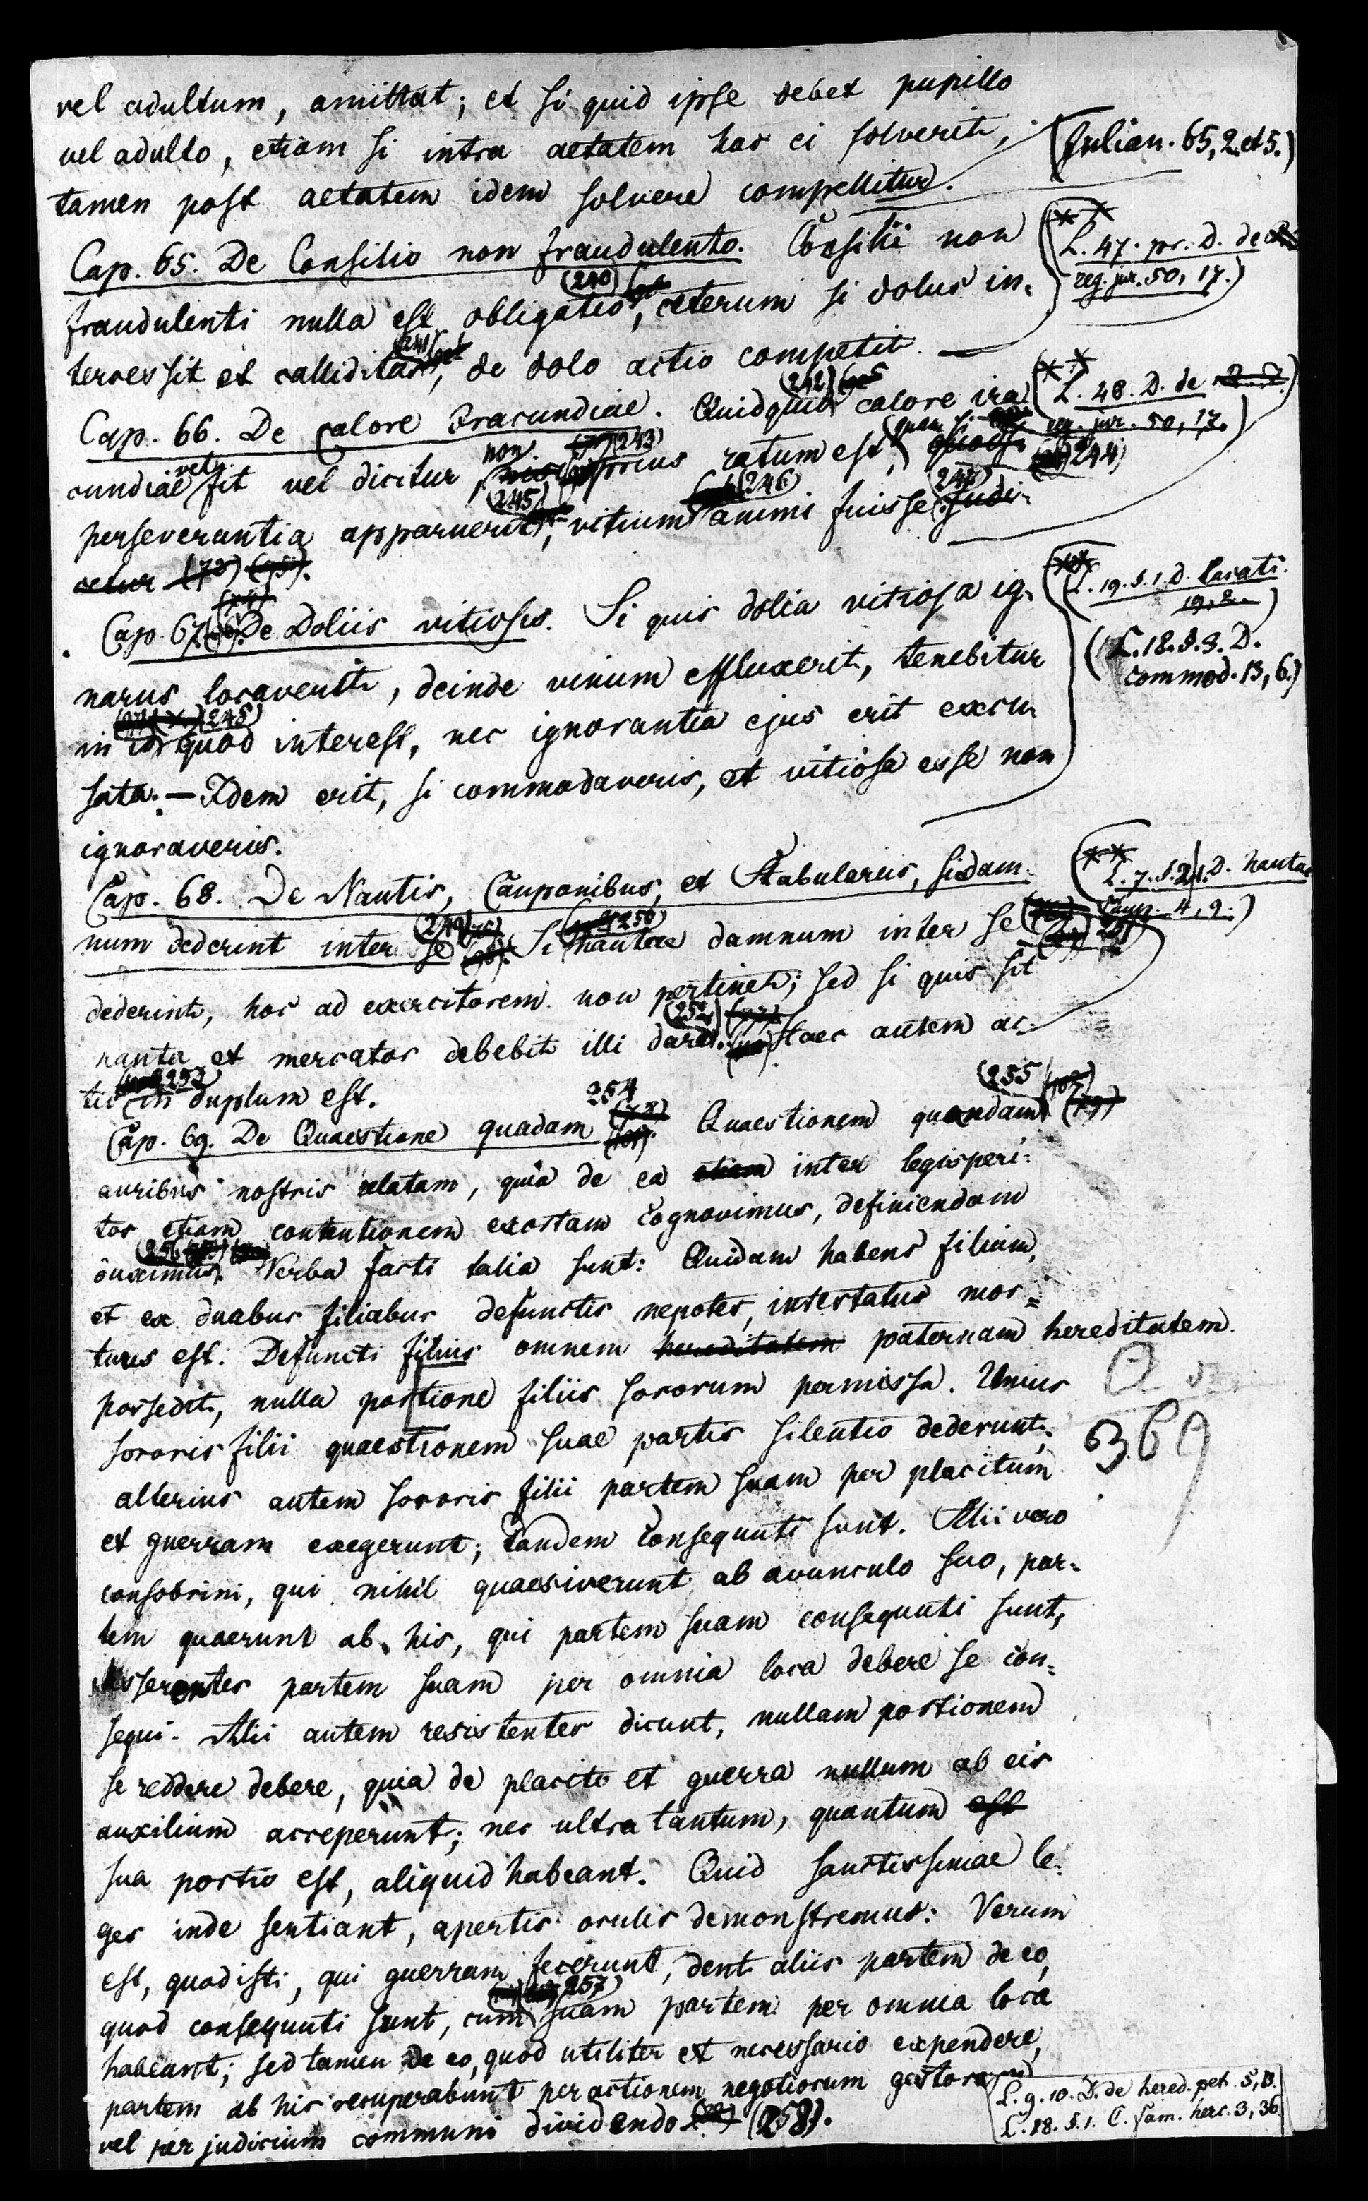 vel adultum, amittat; et si quid ipse debet pupillo
vel adulto, etiam si intra aetatem hac ei solverit,
(Julian. 65, 2. et 5.)
tamen post aetatem idem solvere compellitur.
Cap. 65. De Consilio non fraudulento. Consilii non
(L. 47. pr. D. de
reg. jur. 50, 17.)
(240)
fraudulenti nulla est obligatio, ceterum si dolus in-
(241)
tercessit et calliditas, de dolo actio competit.
(242)
Cap. 66. De calore Iracundiae. Quidquid calore ira
(L. 48. D. de
reg. jur. 50, 17.)
vel non (243) quam si (244)
cundiae fit vel dicitur prius ratum est,
(245) (246) (247)
perseverantia apparuerit, vitium animi fuisse
Cap. 67. De Doliis vitiosis. Si quis dolia vitiosa ig-
(L. 19. §. 1. D. Locati.
19, 2.)
(L. 18. §. 3. D.
commod. 13, 6.)
narus locaverit, deinde vinum effluxerit, tenebitur
(248)
in id quod interest, nec ignorantia ejus erit excu-
sata. — Idem erit, si commodaveris, et vitiosa esse non
ignoraveris.
Cap. 68. De Nautis, Cauponibus, et Stabulariis, si dam-
(L. 7. §. 2. D. nautae
caup. 4, 9.)
(249) (250)
num dederint inter se. Si nautae damnum inter se
dederint, hoc ad exercitorem non pertinet; sed si quis sit
(252)
nauta et mercator debebit illi dare. Haec autem ac-
(253)
tio in duplum est.
254 (255)
Cap. 69. De Quaestione quadam Quaestionem quandam
auribus nostris relatam, quia de ea inter legisperi-
tos etiam contentionem exortam cognovimus, definiendam
(256)
duximus. Verba facti talia sunt: Quidam habens filium,
et ex duabus filiabus defunctis nepotes, intestatus mor-
tuus est. Defuncti filius omnem hereditatem paternam hereditatem
possedit, nulla portione filiis sororum permissa. Unius
369
sororis filii quaestionem suae partis silentio dederunt;
alterius autem sororis filii partem suam per placitum
et guerram exegerunt; tandem consequuti sunt. Alii vero
consobrini, qui nihil quaesiverunt ab avunculo suo, par-
tem quaerunt ab his, qui partem suam consequuti sunt,
asserentes partem suam per omnia loca debere se con-
sequi. Alii autem resistentes dicunt, nullam portionem
se reddere debere, quia de placito et guerra nullum ab eis
auxilium acceperunt; nec ultra tantum, quantum est
sua portio est, aliquid habeant. Quid sanctissimae le-
ges inde sentiant, apertis oculis demonstremus: Verum
est, quod isti, qui guerram fecerunt, dent aliis partem de eo,
(257)
quod consequuti sunt, cum suam partem per omnia loca
habeant; sed tamen de eo, quod utiliter et necessario expendere,
partem ab his recuperabunt per actionem negotiorum gestorum
vel per judicium communi dividendo (258).
L. 9. 10. D. de hered. pet. 5, 3.
L. 18. §. 1. C. fam. herc. 3, 36.